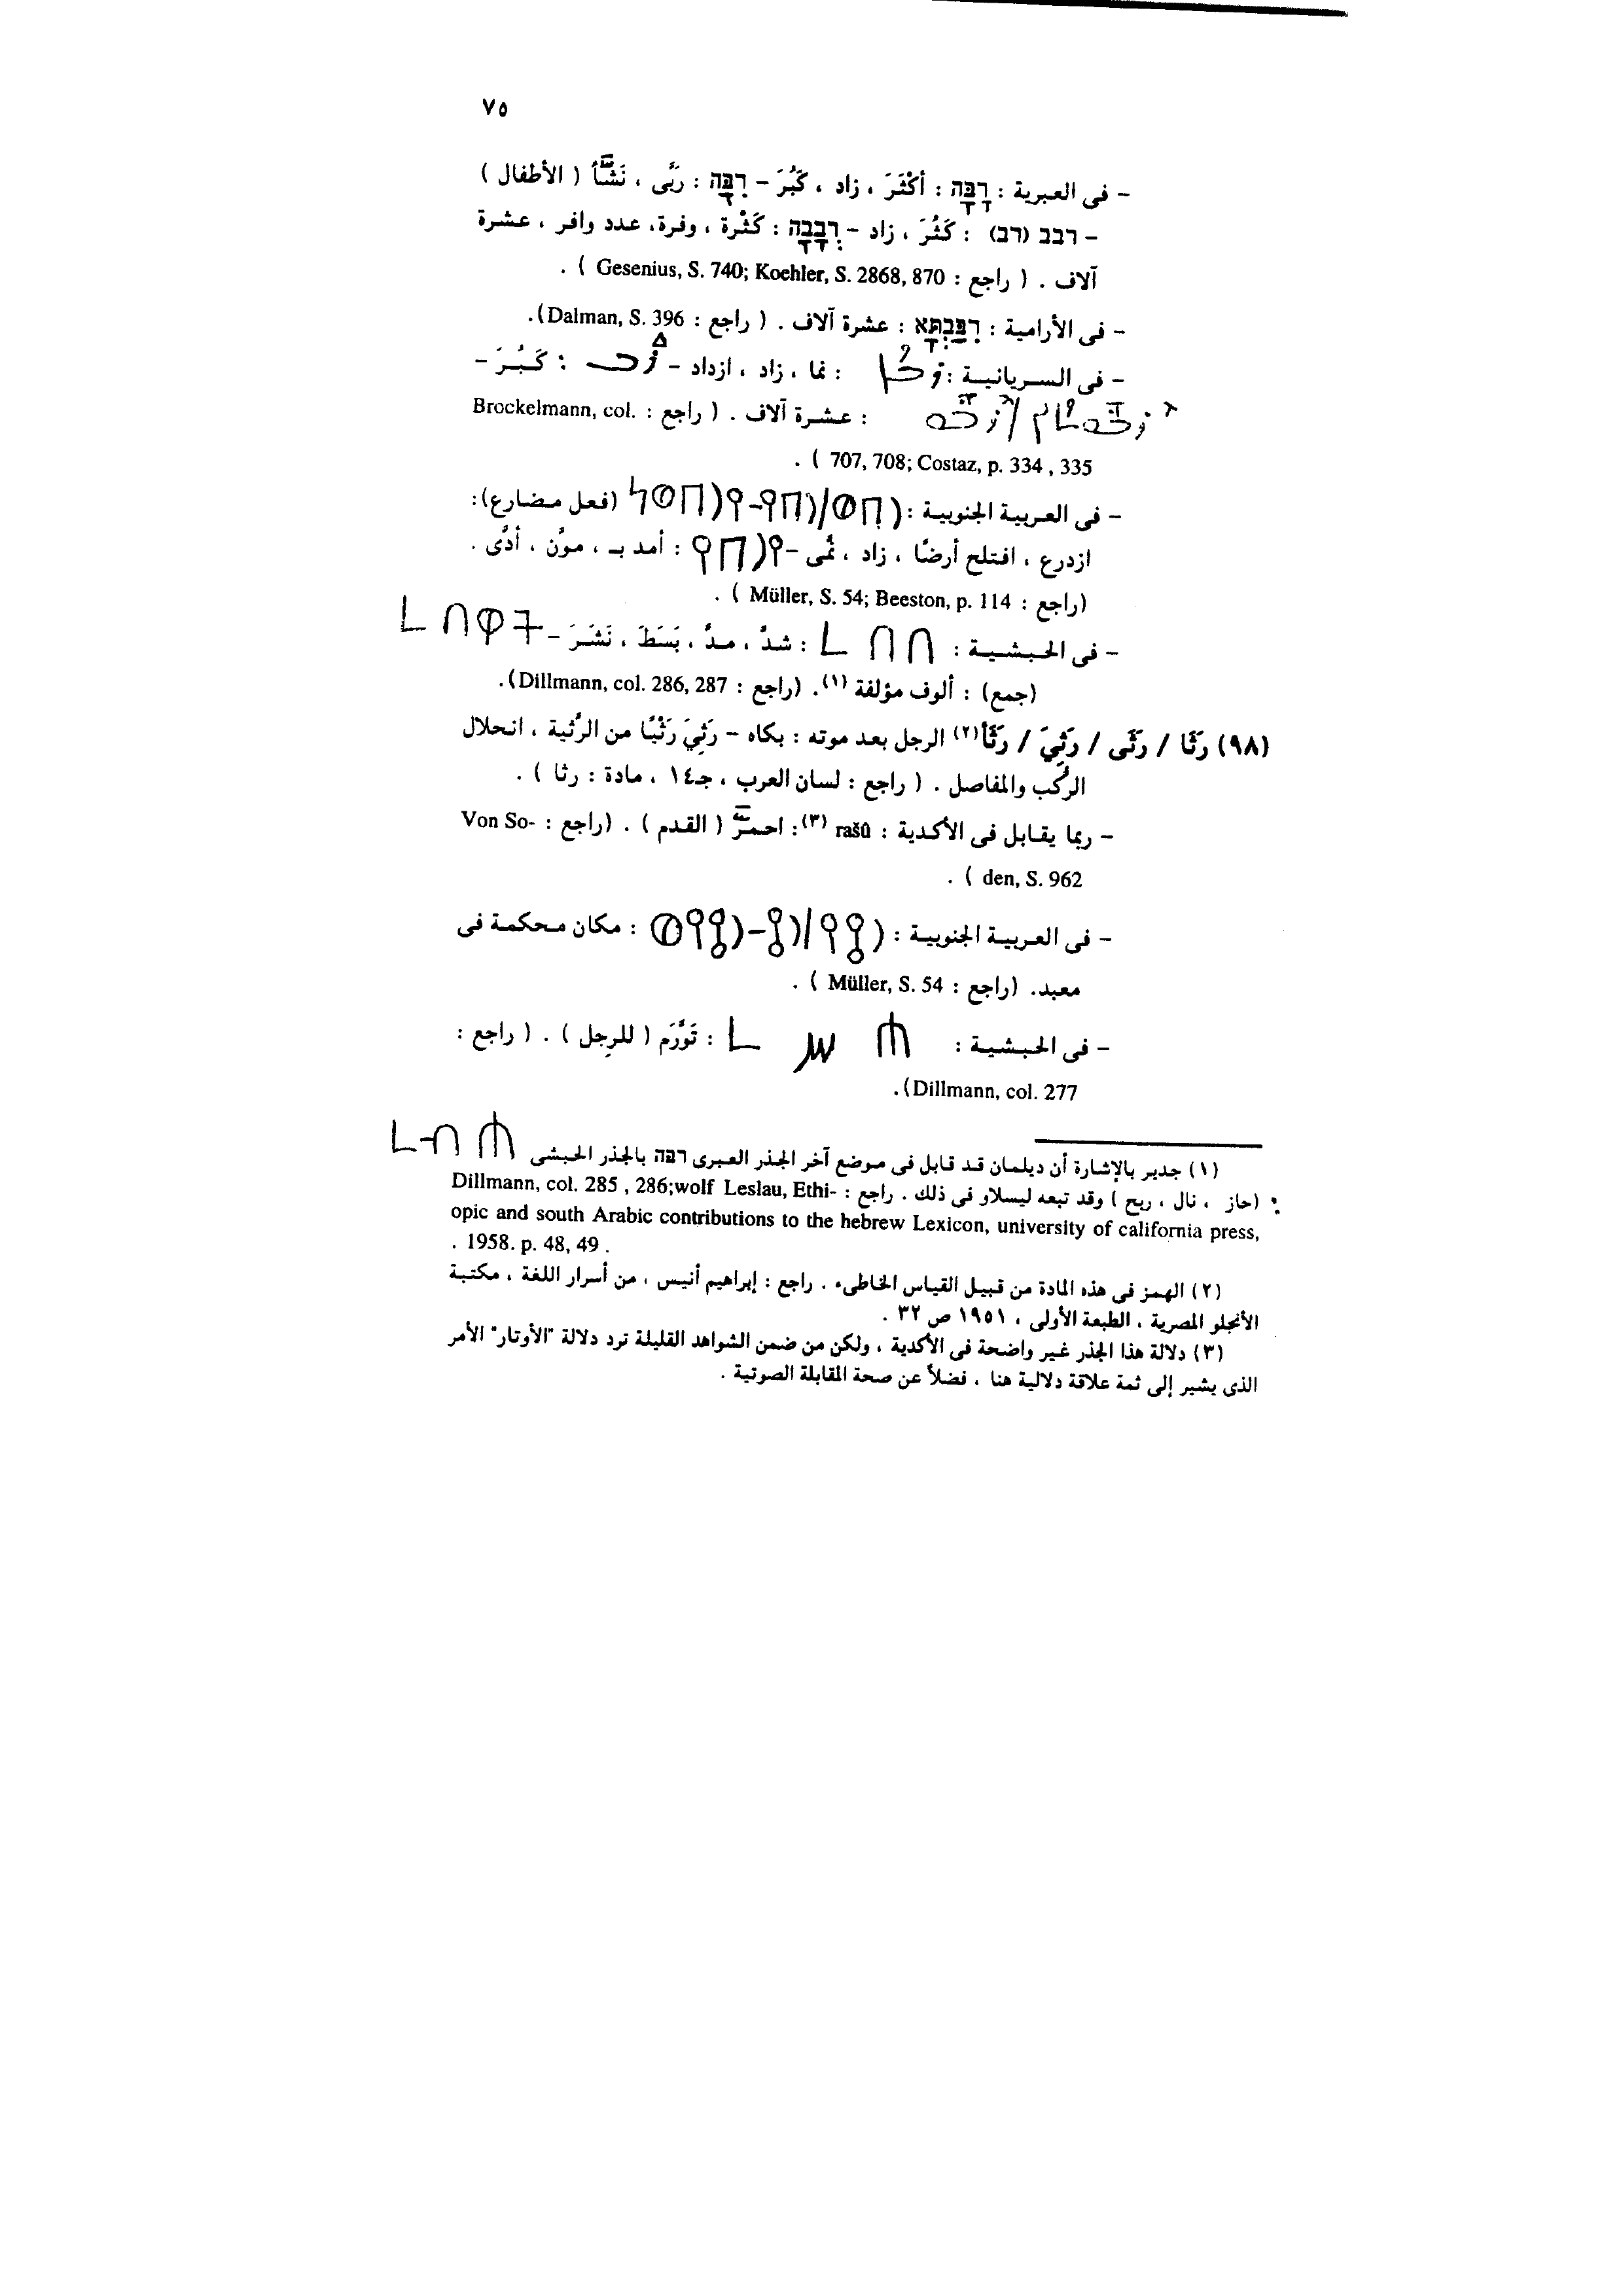 ٧٥
- فى العبرية : רָבָה : أكْثَرَ ، زاد ، كَبُرَ - רִבָּה : ربَّى ، نَشَّأ ( الأطفال )
- רבב (רב) : كَثُرَ ، زاد - רְבָבָה : كَثْرة ، وفرة، عدد وافر ، عشرة
آلاف . ( راجع : Gesenius, S. 740; Koehler, S. 2868, 870 ) .
- فى الأرامية : רִבַּבְתָּא : عشرة آلاف . ( راجع : Dalman, S. 396).
- فى السريانية : : نما ، زاد ، ازداد - : كَبُرَ -
: عشرة آلاف . ( راجع : Brockelmann, col.
707, 708; Costaz, p. 334 , 335 ) .
- فى العربية الجنوبية : (فعل مضارع):
ازدرع ، افتلح أرضًا ، زاد ، نمَّى - 𐩧𐩨𐩺 : أمد بـ ، موَّن ، أدَّى .
(راجع : Müller, S. 54; Beeston, p. 114 ) .
- فى الحبشية : ረ በ በ : شدَّ ، مدَّ ، بَسَطَ ، نَشَرَ -
(جمع) : ألوف مؤلفة (١). (راجع : Dillmann, col. 286, 287).
(٩٨) رَثَا / رَثَى / رَثِيَ / رَثَأ(٢) الرجل بعد موته : بكاه - رَثِيَ رَثْيًا من الرَّثية ، انحلال
الركب والمفاصل . ( راجع : لسان العرب ، جـ١٤ ، مادة : رثا ) .
- ربما يقابل فى الأكدية : rašû (٣): احمرَّ ( القدم ) . (راجع : Von So-
den, S. 962 ) .
- فى العربية الجنوبية : : مكان محكمة فى
معبد. (راجع : Müller, S. 54 ) .
- فى الحبشية : ረ ሥ ሐ : تَوَرَّم ( للرِجل ) . ( راجع :
Dillmann, col. 277).
(١) جدير بالإشارة أن ديلمان قد قابل فى موضع آخر الجذر العبرى רבה بالجذر الحبشى ረ ብ ሐ
(حاز ، نال ، ربح ) وقد تبعه ليسلاو فى ذلك . راجع : Dillmann, col. 285 , 286;wolf Leslau, Ethi-
opic and south Arabic contributions to the hebrew Lexicon, university of california press,
. 1958. p. 48, 49 .
(٢) الهمز فى هذه المادة من قبيل القياس الخاطىء . راجع : إبراهيم أنيس ، من أسرار اللغة ، مكتبة
الأنجلو المصرية ، الطبعة الأولى ، ١٩٥١ ص ٣٢ .
(٣) دلالة هذا الجذر غير واضحة فى الأكدية ، ولكن من ضمن الشواهد القليلة ترد دلالة "الأوتار" الأمر
الذى يشير إلى ثمة علاقة دلالية هنا ، فضلاً عن صحة المقابلة الصوتية .